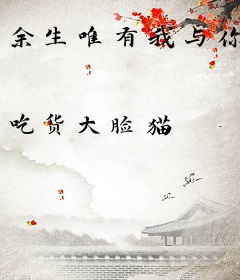 余生唯有我与你
吃货大脸猫